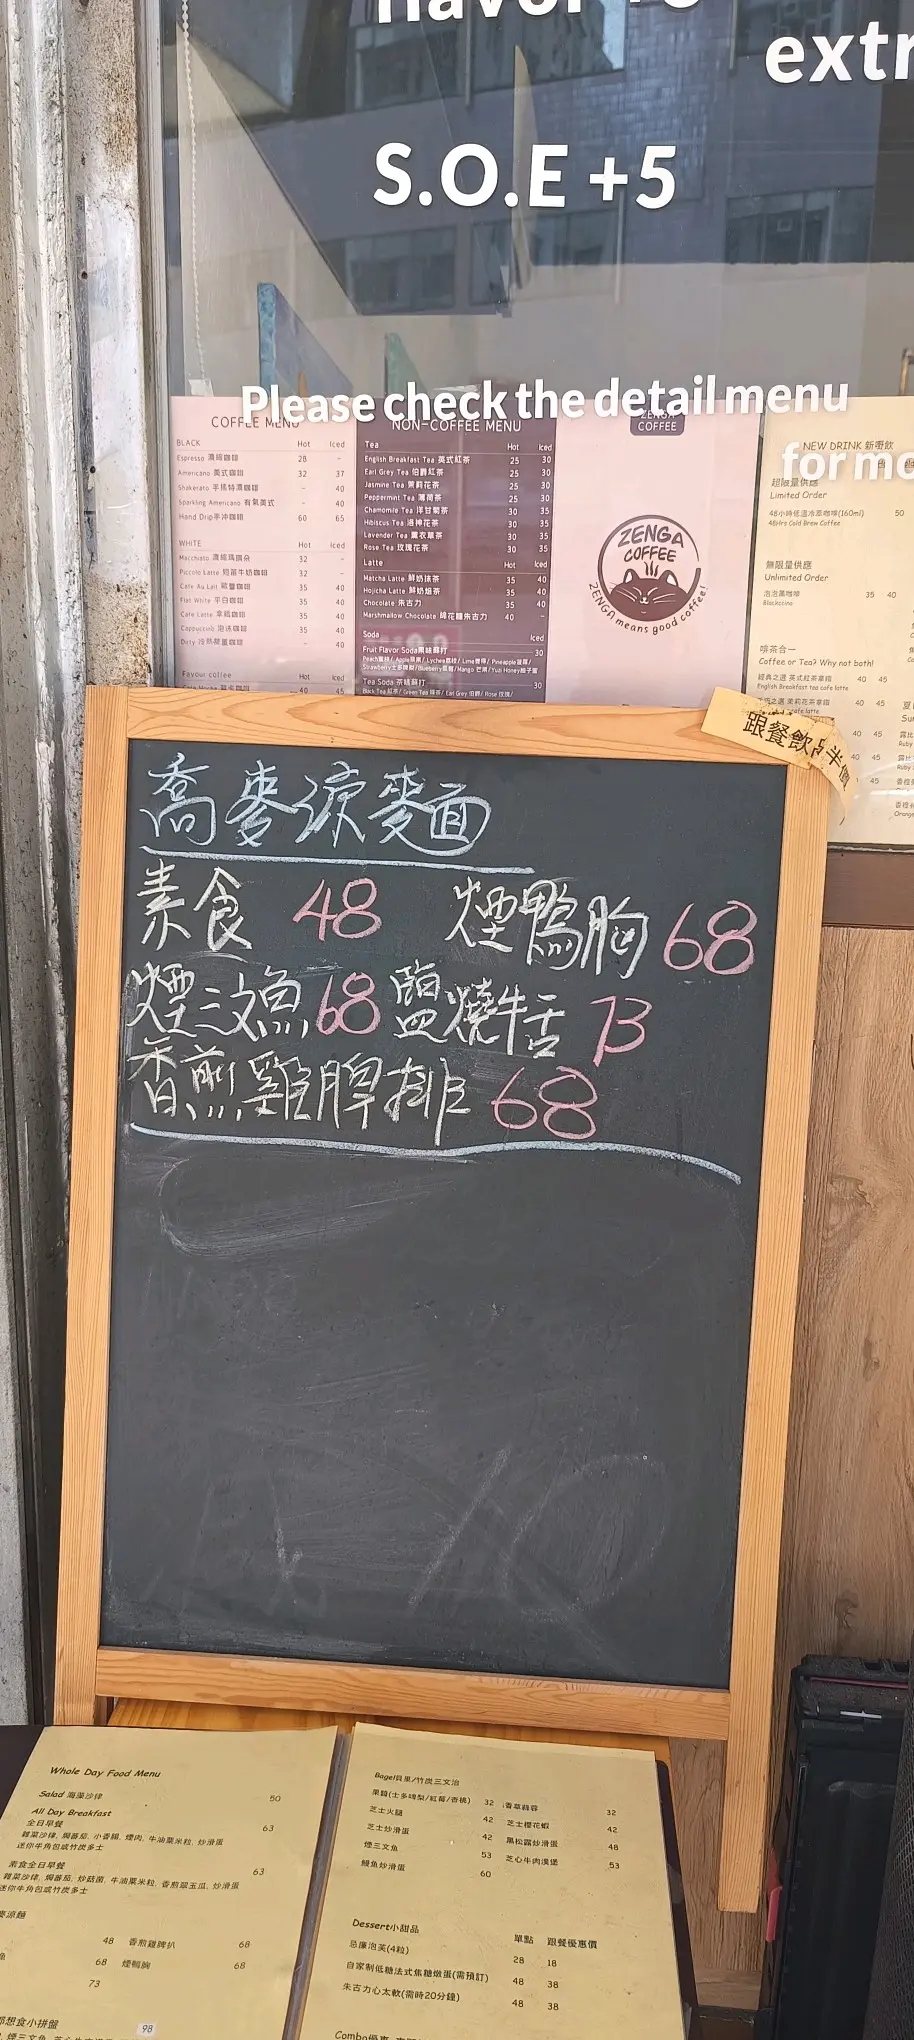 S.O.E +5
Please check the detail menu
COFFEE MENU
BLACK Hot Iced
Espresso 濃縮咖啡 28 -
Americano 美式咖啡 32 37
Shakerato 手搖特濃咖啡 - 40
Sparkling Americano 有氣美式 - 40
Hand Drip手沖咖啡 60 65
WHITE Hot Iced
Macchiato 濃縮瑪琪朵 32 -
Piccolo Latte 短笛牛奶咖啡 32 -
Cafe Au Lait 歐蕾咖啡 35 40
Flat White 平白咖啡 35 40
Cafe Latte 拿鐵咖啡 35 40
Cappuccino 泡沫咖啡 35 40
Dirty 冷熱荷蕾咖啡 40
Favour coffee Hot Iced
40 45
NON-COFFEE MENU
Tea Hot Iced
English Breakfast Tea 英式紅茶 25 30
Earl Grey Tea 伯爵紅茶 25 30
Jasmine Tea 茉莉花茶 25 30
Peppermint Tea 薄荷茶 25 30
Chamomile Tea 洋甘菊茶 30 35
Hibiscus Tea 洛神花茶 30 35
Lavender Tea 薰衣草茶 30 35
Rose Tea 玫瑰花茶 30 35
Latte
Matcha Latte 鮮奶抹茶 35 40
Hojicha Latte 鮮奶焙茶 35 40
Chocolate 朱古力 35 40
Marshmallow Chocolate 綿花糖朱古力 40 -
Soda Iced
Fruit Flavor Soda果味蘇打 30
Tea Soda 茶味蘇打 30
ZENGA
COFFEE
ZENGA
COFFEE
ZENGA means good coffee!
NEW DRINK 新嘢飲
超限量供應
Limited Order
48小時低溫冷萃咖啡(160ml) 50
48Hrs Cold Brew Coffee
無限量供應
Unlimited Order
泡泡黑咖啡 35 40
Blackccino
啡茶合一
Coffee or Tea? Why not bath!
經典之選 英式紅茶拿鐵 40 45
English Breakfast tea cafe latte
跟餐飲品半價
喬麥涼麥面
素食 48 煙鴨胸 68
煙三文魚 68 鹽燒牛舌 73
香煎雞脾排 68
Whole Day Food Menu
Salad 海藻沙律 50
All Day Breakfast
全日早餐 63
雜菜沙律, 焗蕃茄, 小香腸, 煙肉, 牛油粟米粒, 炒滑蛋
迷你牛角包或竹炭多士
素食全日早餐 63
雜菜沙律, 焗蕃茄, 炒菇菌, 牛油粟米粒, 香煎翠玉瓜, 炒滑蛋
迷你牛角包或竹炭多士
48 香煎雞髀扒 68
68 煙鴨胸 68
73
想食小拼盤 98
Bagel貝果/竹炭三文治
果醬(士多啤梨/紅莓/杏桃) 32 香草蒜蓉 32
芝士火腿 42 芝士櫻花蝦 42
芝士炒滑蛋 42 黑松露炒滑蛋 48
煙三文魚 53 芝心牛肉漢堡 53
鰻魚炒滑蛋 60
Dessert小甜品 單點 跟餐優惠價
忌廉泡芙(4粒) 28 18
自家制低糖法式焦糖燉蛋(需預訂) 48 38
朱古力心太軟(需時20分鐘) 48 38